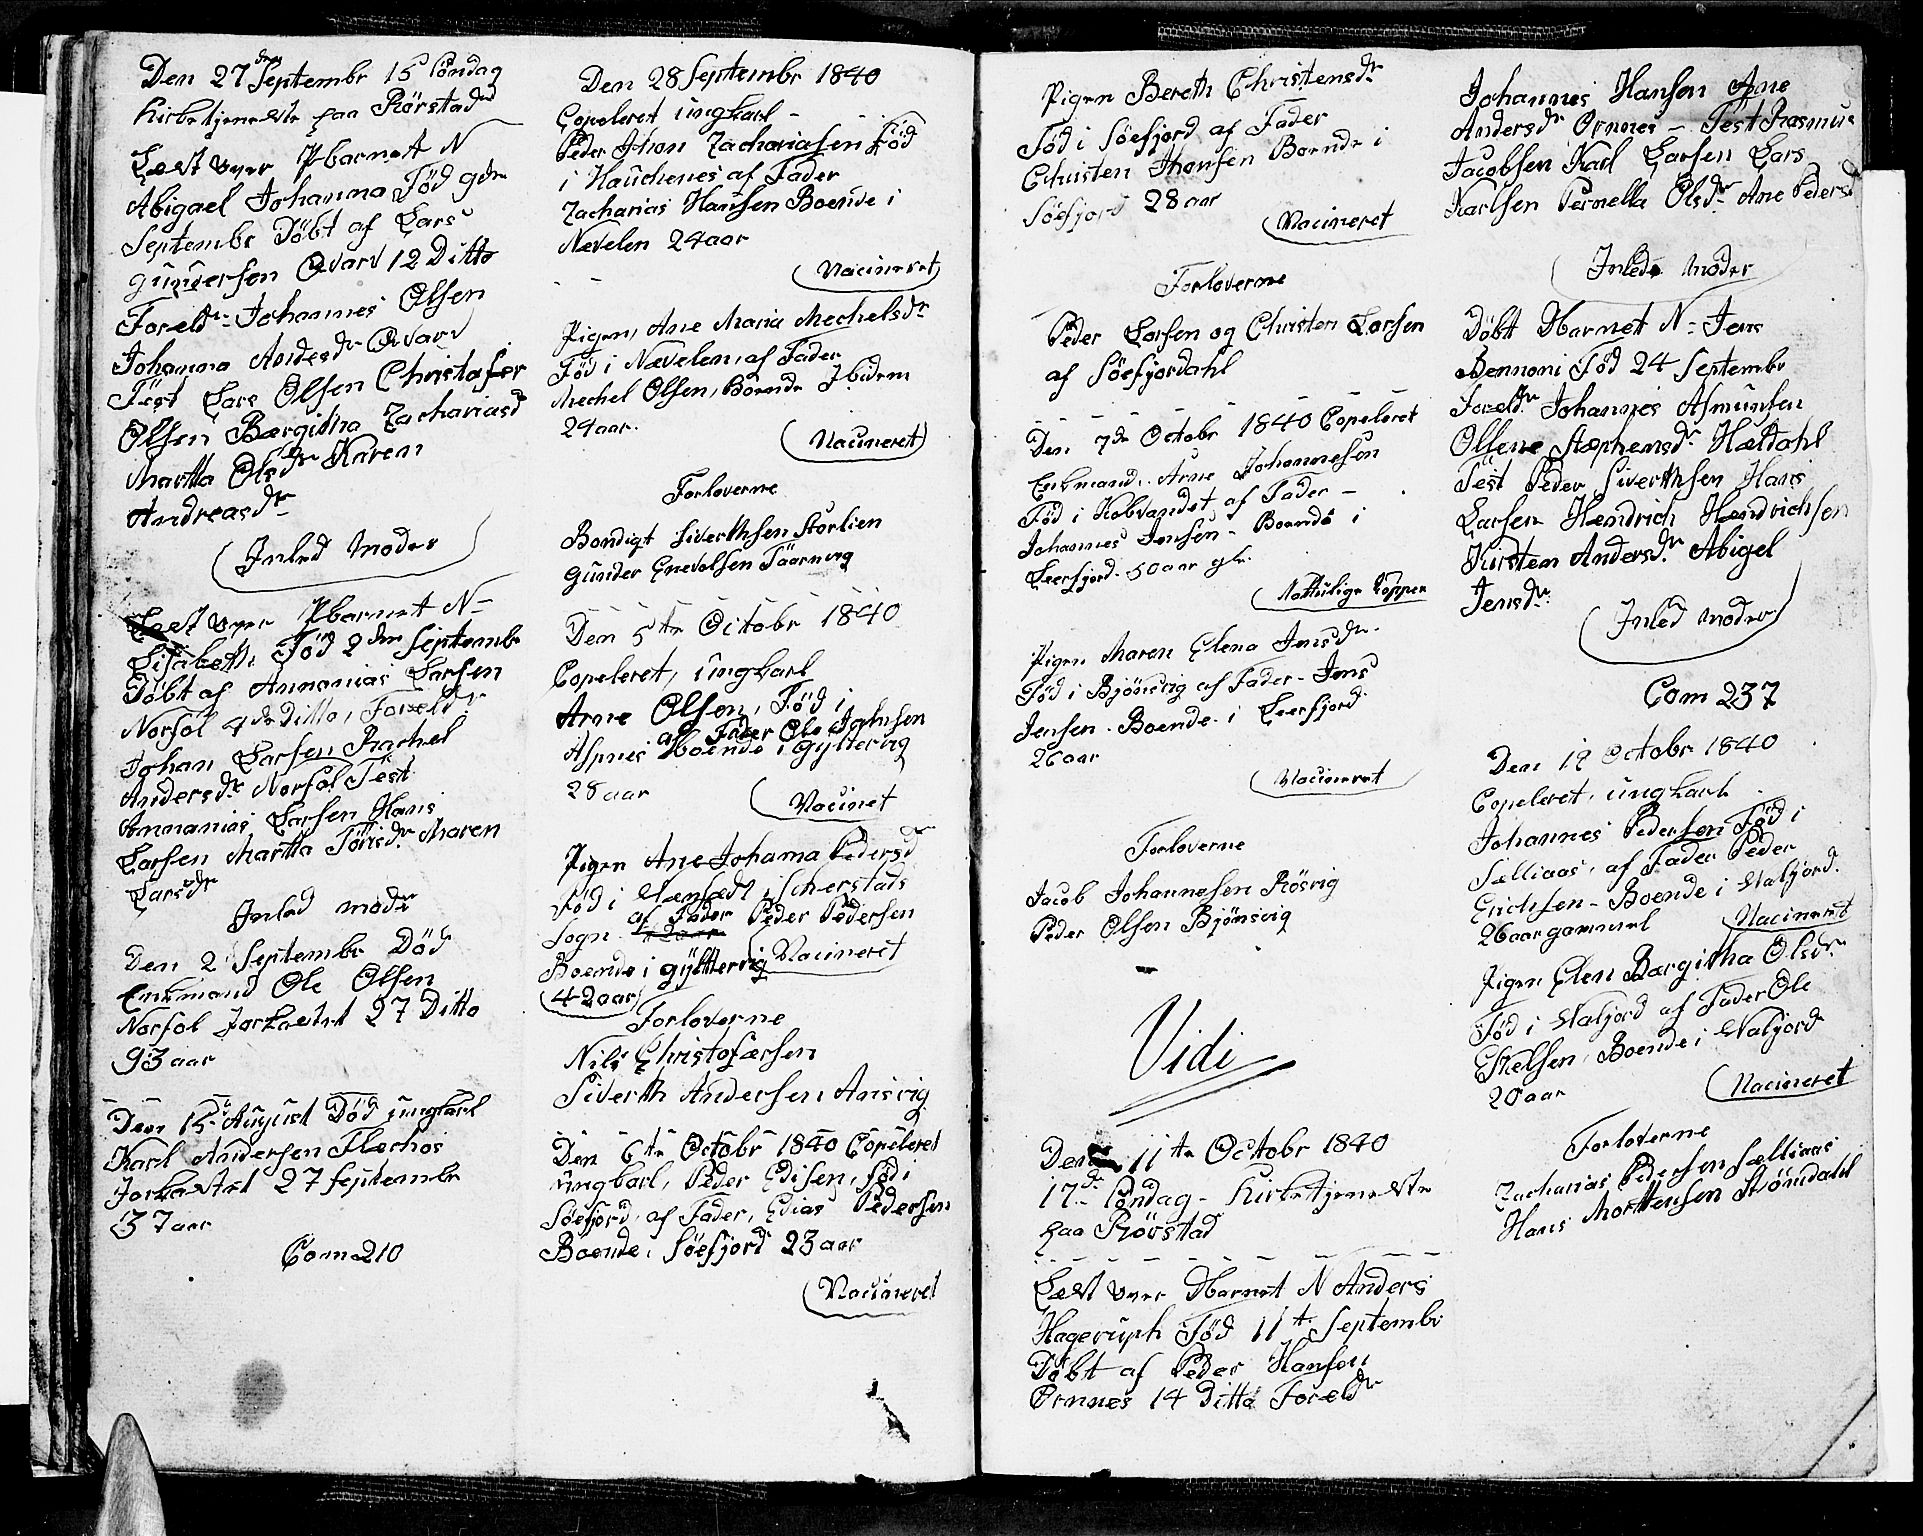 Den 27de Septembr 15 Söndag
kirketjeneste paa Rörstad
Læst over Pbarnet N
Abigael Johanna Föd 9de
Septembr Döbt af Lars
Gundersen Qvarv 12 Ditto
Foreldr Johannes Olsen
Johanna Andesdr Qvarv
Test Lars Olsen Christafer
Olsen Bærgitha Zachariasd
Martha Olsdr Karen
Andreasdr
Inled Moder
Læst over Pbarnet N
Lisabeth Föd 2den Septembr
Döbt af Annanias Larsen
Norföl 4de Ditto, Foreldr
Johan Larsen Rachel
Andersdr Norföl Test
Annanias Larsen Hans
Larsen Martha Törrisdr Maren
Larsdr
Inled modr
Den 2 Septembr Död
Enkmand Ole Olsen
Norföl Jorkastet 27 Ditto
93 aar
Den 15 August Död ungkarl
Karl Andersen Flechos
Jorkastet 27 Septembr
37 aar
Com 210
Den 28 Septembr 1840
Copeleret ungkarl -
Peder Jhon Zachariasen Föd
i Hauchenes af Fader
Zacharias Hansen Boende i
Nævelen 24 aar
Vacineret
Pigen, Ane Maria Mechelsdr
Föd i Nævelen, af Fader
Mechel Olsen, Boende Ibidem
24 aar.
Vacineret
Forloverne
Bendigt Siverthsen Storlien
Gunder Enevolsen Taarnvig
Den 5te Octobr 1840
Copeleret, ungkarl
Arne Olsen, Föd i
af Fader Ole Johnsen
Aspnes Boende i Gyltevig
28 aar
Vacinet
Pigen Ane Johanna Pedersd
Föd i Scherstads
af Fader Peder Pedersen
Sogn
Boende i gylttevig Vacineret
42 aar
Forloverne
Nils Christofærsen
Siverth Andersen Ansvig
Den 6te Octobr 1840 Copeleret
ungkarl, Peder Edisen, Föd i
Söefjord, af Fader, Edias Pedersen
Boende, Söefjord 23 aar
Vacineret
Pigen Bereth Christensdr
Föd i Söefjord af Fader
Christen Jhonsen Boende i
Söefjord 28 aar
Vacineret
Forloverne
Peder Larsen og Christen Larsen
af Söefjordahl
Den 7de Octobr 1840 Copeleret
Enkmand, Arne Johannesen
Föd i Kobvandet af Fader -
Johannes Jensen - Boende i
Leerfjord. 50 aar gl.
Nattulige Kopper
Pigen Maren Elena Jensdr
Föd i Bjönsvig af Fader - Jens
Jensen - Boende i Leerfjord
26 aar
Vacineret
Forloverne
Jacob Johannesen Rösvig
Peder Olsen Bjönsvig
Vidi
Den 11te Octobr 1840
17de Söndag - kirketjeneste
paa Rörstad
Læst over Dbarnet N Anders
Hagerüph Föd 11te Septembr
Döbt af Peder Hansen
Ornnes 14 Ditto Foreldr
Johannes Hansen Ane
Andersdr Ornnes - Test Rasmus
Jacobsen Karl Larsen Lars
Karlsen Pernella Olsdr Ane Pedersd
Inlede Moder
Döbt Dbarnet N- Jens
Bennoni Föd 24 Septembr
Foreldr Johannes Asmunsen
Ollene Stephensdr Hældahl
Test Peder Siverthsen Hans
Larsen Hendrich Hendrichsen
Kirsten Andersdr Abigel
Jensdr
Inled Moder
Com 237
Den 12 Octobr 1840
Copeleret, ungkarl
Johannes Pedersen Föd i
Sælliaas, af Fader Peder
Erichsen - Boende i Valjord.
26 aar gammel Vacineret
Pigen Elen Bærgitha Olsdr
Föd i Valjord af Fader Ole
Ekelsen, Boende i Valjord
20 aar
Vacineret
Forloverne
Zacharias Pedersen Sælliaas
Hans Morttensen Strömdahl